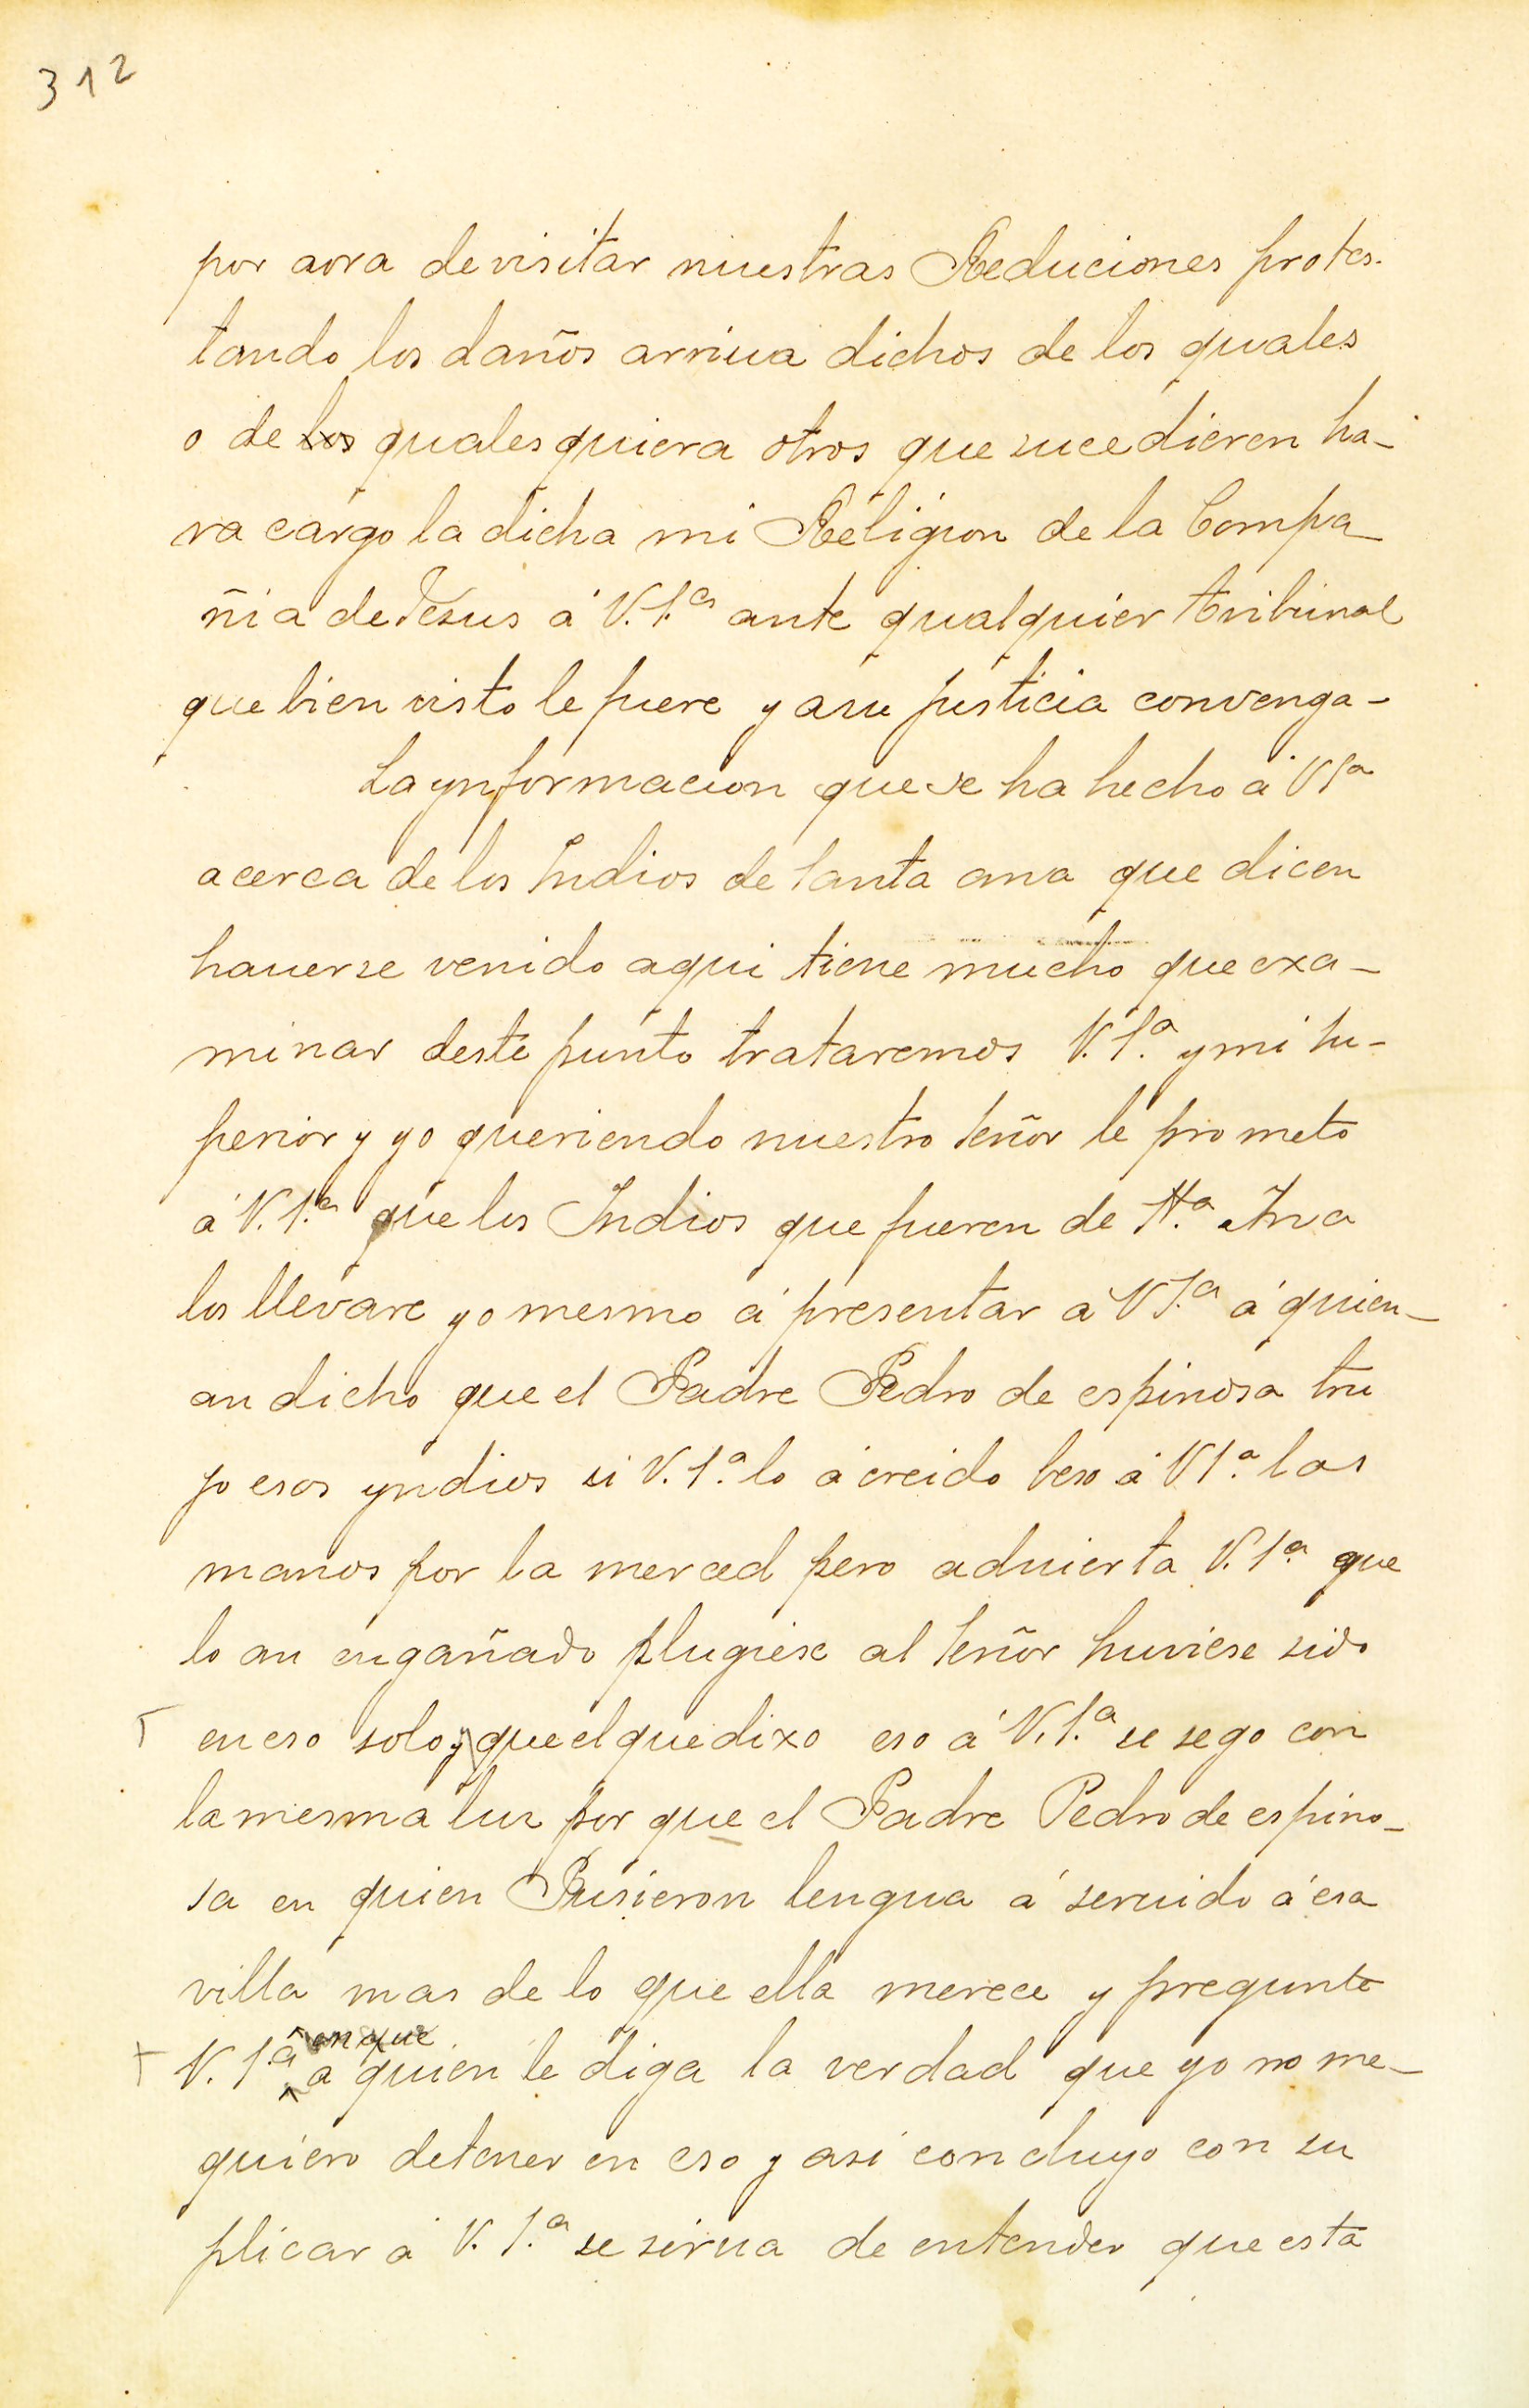 312
por aora de visitar nuestras Reduciones protes-
tando los daños arriua dichos de los quales
o de los qualesquiera otros que sucedieren ha-
ra cargo la dicha mi Religion de la Compa
ñia de Jesus á V. S.ª ante qualquier tribunal
que bien visto le fuere y a su justicia convenga-
La ynformacion que se ha hecho á V Sª
acerca de los Indios de Santa ana que dicen
hauerse venido aqui tiene mucho que exa-
minar deste punto trataremos V. S.ª y mi Su-
perior y yo queriendo nuestro Señor le prometo
á V. S.ª que los Indios que fueren de Sta. Ana
los llevare yo mesmo á presentar á V S.ª á quien-
an dicho que el Padre Pedro de espinosa tru
jo esos yndios si V. S.ª lo á creido beso á V S.ª las
manos por la merced pero aduierta V. S.ª que
lo an engañado plugiese al Señor huviese sido
en eso solo y que el que dixo eso á V. S.ª se sego con
la mesma luz por que el Padre Pedro de espino-
sa en quien Pusieron lengua á seruido á esa
villa mas de lo que ella merece y pregunte
V. S.ª en que a quien le diga la verdad que yo no me-
quiero detener en eso y asi concluyo con su
plicar á V. S.ª se sirua de entender que esta